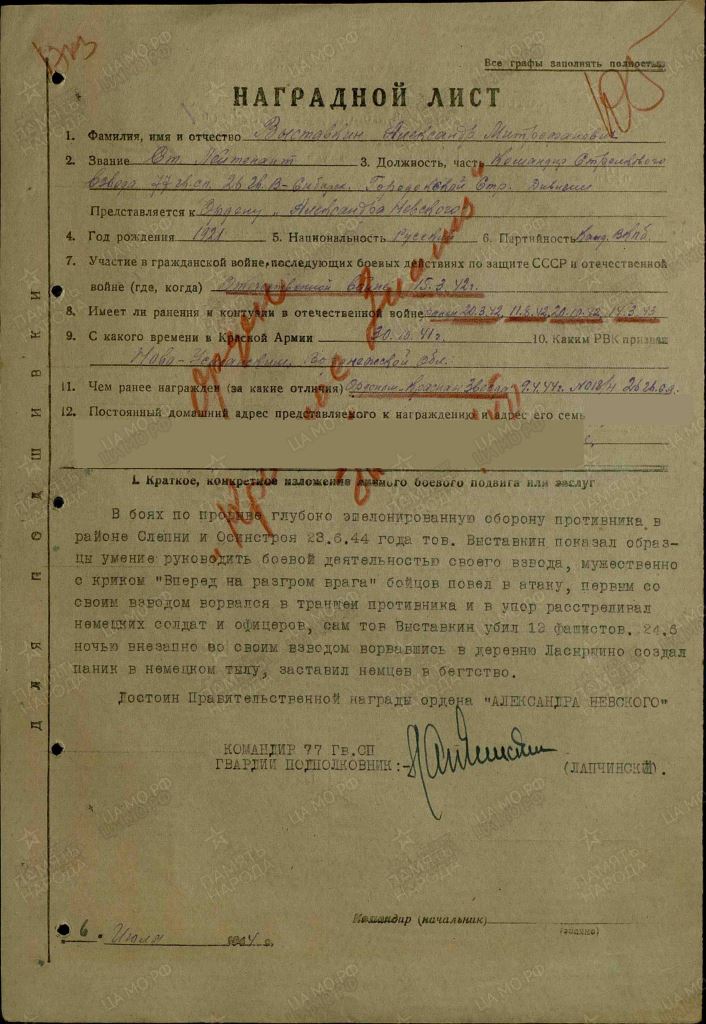 Все графы заполнять полностью
НАГРАДНОЙ ЛИСТ
1. Фамилия, имя и отчество Выставкин Александр Митрофанович
2. Звание Ст. Лейтенант 3. Должность, часть Командир Стрелкового
взвода 77 гв. сп. 26 гв. В-Сибирск. Городокской Стр. Дивизии
Представляется к Ордену „Александра Невского"
4. Год рождения 1921 5. Национальность Русский 6. Партийность Канд. ВКПб.
7. Участие в гражданской войне, последующих боевых действиях по защите СССР и отечественной
войне (где, когда) Отечественной войне 15.3.42г.
8. Имеет ли ранения и контузии в отечественной войне ранен 20.3.42, 11.8.42, 14.3.43
9. С какого времени в Красной Армии 41г. 10. Каким РВК призван
Воронежской Обл.
11. Чем ранее награжден (за какие отличия) Орденом Красная Звезда 9.4.44г. 26 гв.
12. Постоянный домашний адрес представляемого к награждению и адрес его семь
1. Краткое, конкретное изложение личного боевого подвига или заслуг
В боях по прорыве глубоко эшелонированную оборону противника в
районе Слепни и Осинстроя 23.6.44 года тов. Выставкин показал образ-
цы умение руководить боевой деятельностью своего взвода, мужественно
с криком "Вперед на разгром врага" бойцов повел в атаку, первым со
своим взводом ворвался в траншеи противника и в упор расстреливал
немецких солдат и офицеров, сам тов Выставкин убил 12 фашистов. 24.6
ночью внезапно во своим взводом ворвавшись в деревню создал
паник в немецком тылу, заставил немцев в бегтство.
Достоин Правительственной награды ордена "АЛЕКСАНДРА НЕВСКОГО"
КОМАНДИР 77 Гв.СП
ГВАРДИИ ПОДПОЛКОВНИК:- (ЛАПЧИНСКИЙ).
Командир (начальник)
(звание)
6. Июля 1944 г.
ДЛЯ ПОДШИВКИ
ПАМЯТЬ НАРОДА
ЦАМО.РФ